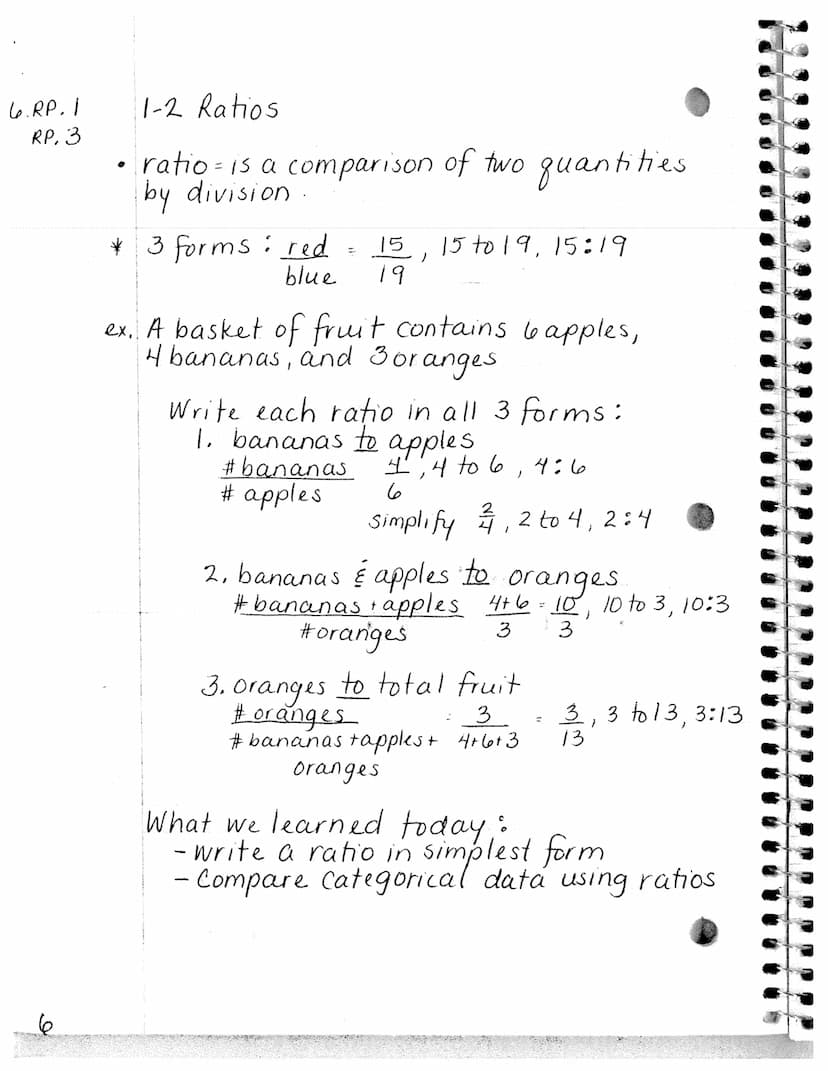 6.RP.1 1-2 Ratios
RP.3
• ratio = is a comparison of two quantities
by division.
* 3 forms: red/blue = 15/19, 15 to 19, 15:19
ex. A basket of fruit contains 6 apples,
4 bananas, and 3 oranges
Write each ratio in all 3 forms:
1. bananas to apples
#bananas/# apples 4/6, 4 to 6, 4:6
simplify 2/4, 2 to 4, 2:4
2. bananas & apples to oranges
#bananas + apples/#oranges 4+6/3 = 10/3, 10 to 3, 10:3
3. oranges to total fruit
# oranges/# bananas + apples + oranges = 3/4+6+3 = 3/13, 3 to 13, 3:13
What we learned today:
- write a ratio in simplest form
- Compare categorical data using ratios
6